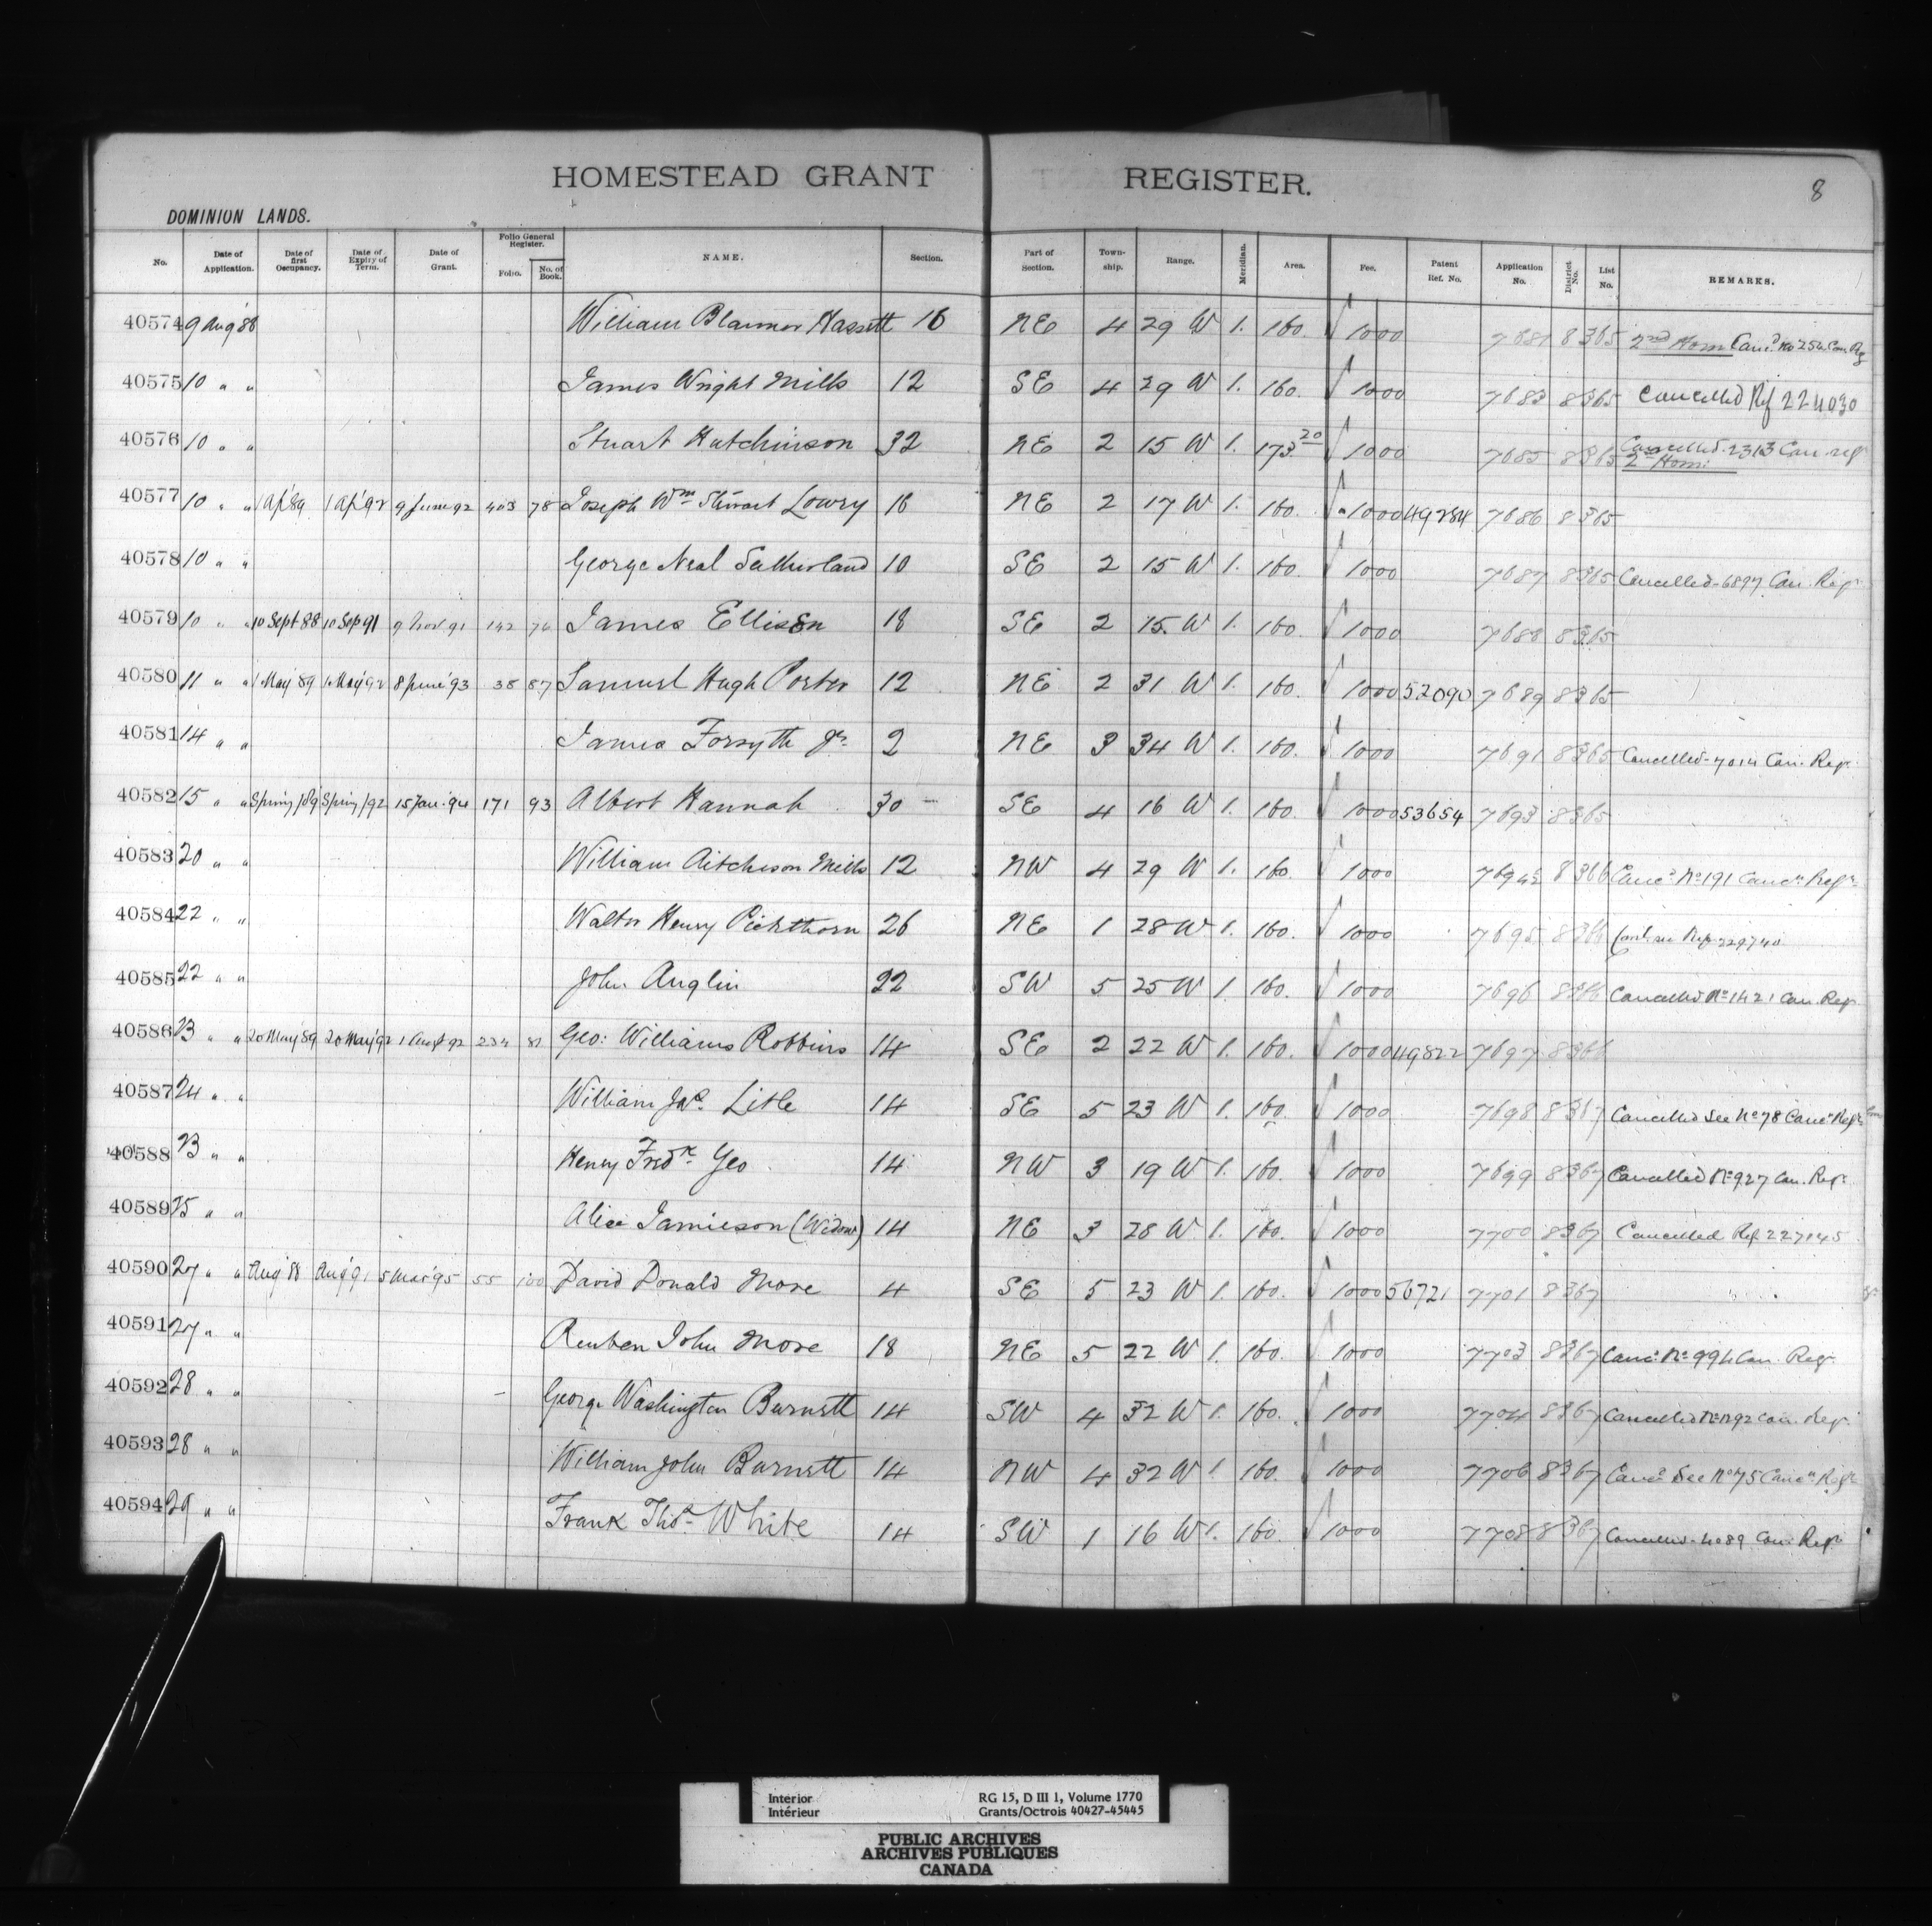 HOMESTEAD GRANT REGISTER.
8
DOMINION LANDS.
No. Date of Application. Date of first Occupancy. Date of Expiry of Term. Date of Grant. Folio General Register. Folio. No. of Book. NAME. Section. Part of Section. Town-ship. Range. Meridian. Area. Fee. Patent Ref. No. Application No. District No. List No. REMARKS.
40574 9 Aug '88 William Hassett 16 NE 4 29 W 1. 160. 1000 7681 8 365 2nd Hom Canc.d No 254 Can Rg
40575 10 " " James Wright Mills 12 SE 4 29 W 1. 160. 1000 7683 8 365 Cancelled Ref 224030
40576 10 " " Stuart Hutchinson 32 NE 2 15 W 1. 173 20 1000 7685 8 365 Cancelled 2313 Can. reg 2nd Hom.
40577 10 " " 1 Ap '89 1 Ap '92 9 June 92 403 78 Joseph Wm Stewart Lowry 16 NE 2 17 W 1. 160. 1000 49284 7686 8 365
40578 10 " " George Neal Sutherland 10 SE 2 15 W 1. 160. 1000 7687 8 365 Cancelled - 6897 Can. Reg.
40579 10 " " 10 Sept 88 10 Sep 91 9 Nov 91 142 74 James Ellison 18 SE 2 15. W 1. 160. 1000 7688 8 365
40580 11 " " 1 May '89 1 May '92 8 June '93 38 87 Samuel Hugh Porter 12 NE 2 31 W 1. 160. 1000 52090 7689 8 365
40581 14 " " James Forsyth Jr. 2 NE 3 34 W 1. 160. 1000 7691 8 365 Cancelled - 7014 Can. Reg.
40582 15 " " Spring /89 Spring /92 15 Jan. '94 171 93 Albert Hannah 30 SE 4 16 W 1. 160. 1000 53654 7693 8 365
40583 20 " " William Aitcheson Mills 12 NW 4 29 W 1. 160. 1000 8 366 Canc.d No 191 Canc.n Regr.
40584 22 " " Walter Henry Pickthorn 26 NE 1 28 W 1. 160. 1000 7695 8 366 see Ref 229740
40585 22 " " John Anglin 22 SW 5 25 W 1 160. 1000 7696 8 366 Cancelled No 1421 Can. Reg.
40586 23 " " 20 May '89 20 May '92 1 Augt 92 234 81 Geo: Williams Robbins 14 SE 2 22 W 1. 160. 1000 49822 7697 8 366
40587 24 " " William Jas. Litle 14 SE 5 23 W 1. 160. 1000 7698 8 367 Cancelled See No 78 Canc.n Regr.
40588 23 " " Henry Fredk Geo 14 NW 3 19 W 1. 160. 1000 7699 8 367 Cancelled No 927 Can. Regr.
40589 25 " " Alice Jamieson (Widow) 14 NE 3 28 W 1. 160. 1000 7700 8 367 Cancelled Ref 227145
40590 27 " " Aug '88 Aug '91 5 Mar '95 55 100 David Donald More 4 SE 5 23 W 1. 160. 1000 56721 7701 8 367
40591 27 " " Reuben John More 18 NE 5 22 W 1. 160. 1000 7703 8 367 Canc. No 994 Can. Reg.
40592 28 " " George Washington Burnett 14 SW 4 32 W 1. 160. 1000 7704 8 367 Cancelled Can. Reg.
40593 28 " " William John Burnett 14 NW 4 32 W 1 160. 1000 7706 8 367 Canc.d See No 75 Canc.n Regr
40594 29 " " Frank Thos. White 14 SW 1 16 W 1. 160. 1000 7708 8 367 Cancelled - 4089 Can. Regr.
Interior RG 15, D III 1, Volume 1770
Intérieur Grants/Octrois 40427-45445
PUBLIC ARCHIVES
ARCHIVES PUBLIQUES
CANADA